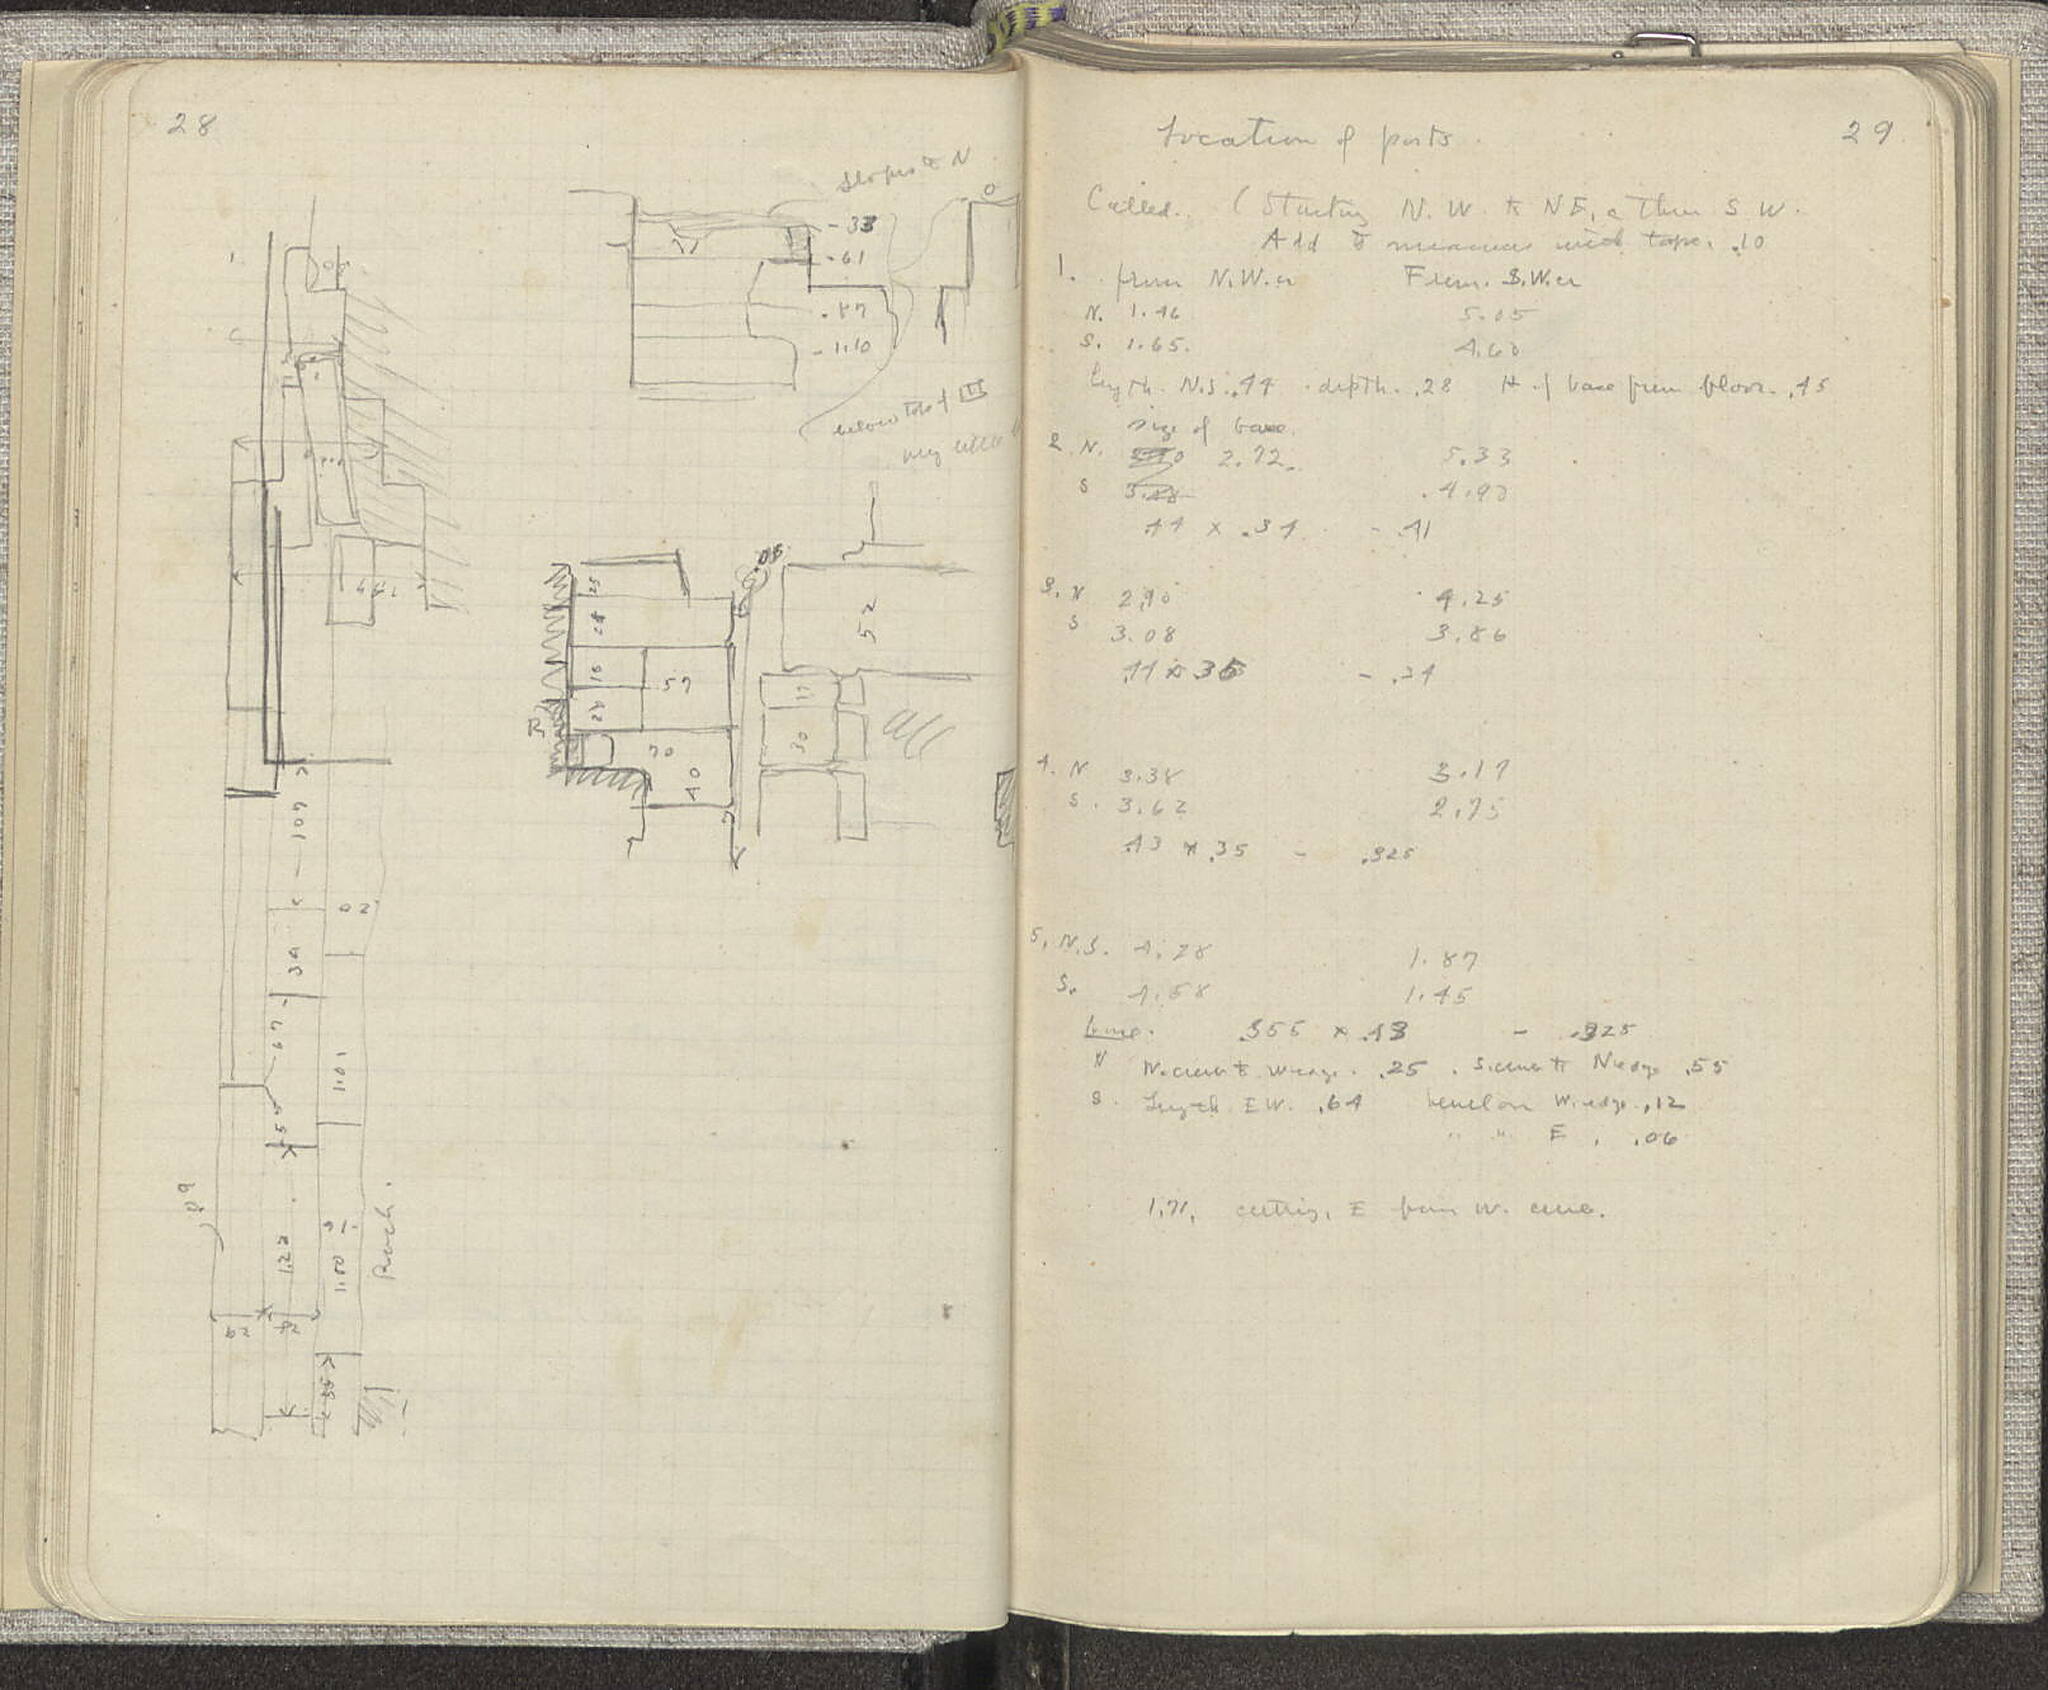 28
slopes to N
0
- 33
- 61
- .87
- 1.10
below top of III
.05
25
24
16
57
23
R
70
40
52
17
30
107
20
39
67
1.01
55
69
1.22
91
1.00
Rock.
29
42
35
29
Location of posts.
Called. (Starting N.W. to NE, & then S W.
Add to measures with tape. .10
1. from N.W. cr From. S.W. cr
N. 1.46 5.05
S. 1.65. 4.60
length. N.S. .44 . depth. .28 Ht of base from floor. .45
size of base.
2. N. 2.72. 5.33
S 4.90
.44 x .34 - .41
3. N 2.90 4.25
S 3.08 3.86
.44 x 36 - .34
4. N 3.38 3.17
S. 3.62 2.75
.43 x .35 - .325
5. N.S. 4.28 1.87
S. 4.58 1.45
base. .355 x .43 - .325
N N. corner to W. edge. .25 . S. corner to N edge .55
S. Length E W. .64 bevel on W. edge. .12
" " E . .06
1.71, cutting, E from W.